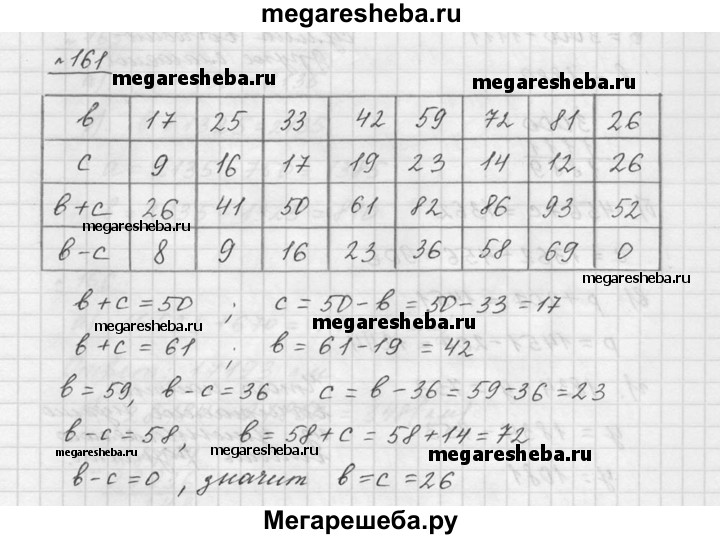 megaresheba.ru
№161
megaresheba.ru megaresheba.ru
в 17 25 33 42 59 72 81 26
с 9 16 17 19 23 14 12 26
в+с 26 41 50 61 82 86 93 52
megaresheba.ru
в-с 8 9 16 23 36 58 69 0
megaresheba.ru
в+с=50 ; с=50-в=50-33=17
megaresheba.ru megaresheba.ru
в+с=61 ; в=61-19=42
в=59, в-с=36 с=в-36=59-36=23
в-с=58, в=58+с=58+14=72
megaresheba.ru megaresheba.ru megaresheba.ru
в-с=0, значит в=с=26
Мегарешеба.ру